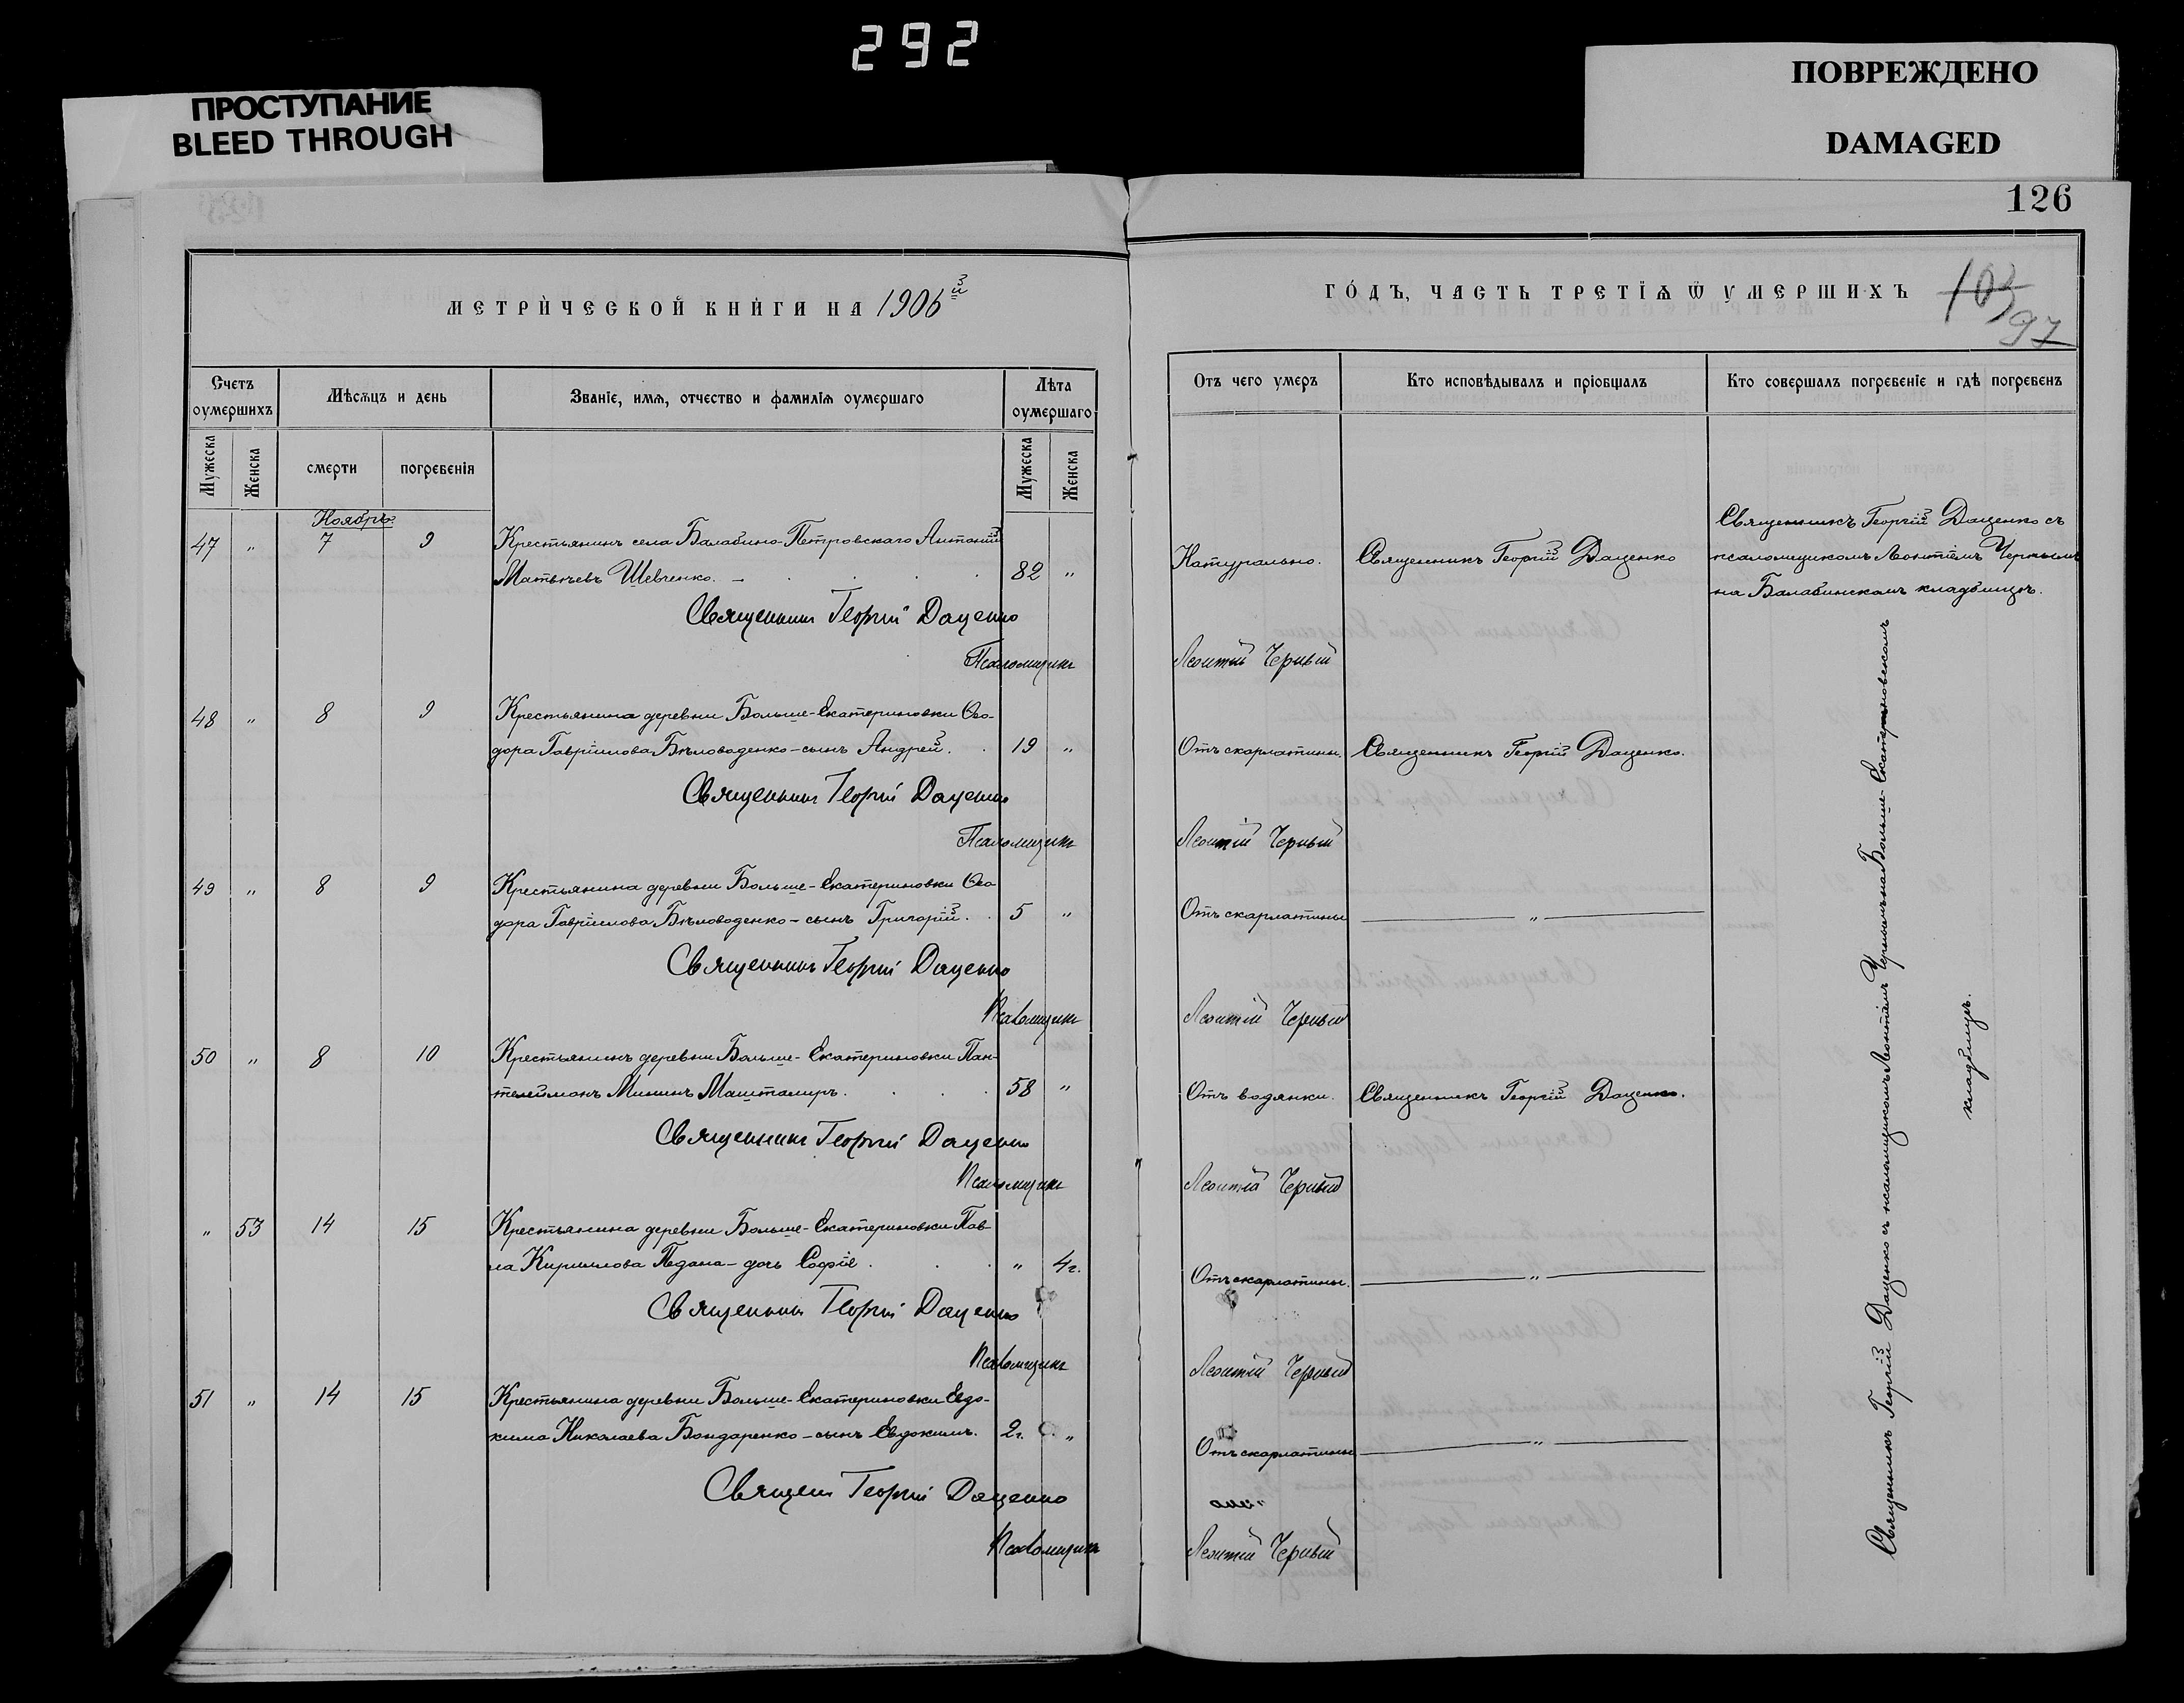 292
ПРОСТУПАНИЕ
BLEED THROUGH
ПОВРЕЖДЕНО
DAMAGED
126
МЕТРИ́ЧЕСКОЙ КНИ́ГИ НА 1906й
ГО́ДЪ, ЧАСТЬ ТРЕТІѦ Ѿ УМЕРШИХЪ
103
97
Счетъ оумершихъ
Мѣсѧцъ и день
Званіе, имѧ, отчество и фамиліѧ оумершаго
Лѣта оумершаго
Отъ чего умеръ
Кто исповѣдывалъ и пріобщалъ
Кто совершалъ погребеніе и гдѣ погребенъ
Мужеска
Женска
смерти
погребенія
Мужеска
Женска
Ноябрь.
47 " 7 9 Крестьянинъ села Балабино-Петровскаго Антоній
Матвѣевъ Шевченко. 82 "
Натурально. Священникъ Георгій Даценко
Священникъ Георгій Даценко съ
псаломщикомъ Леонтіемъ Чернымъ
на Балабинскомъ кладбищѣ.
Священникъ Георгій Даценко
Псаломщикъ Леонтій Черный
48 " 8 9 Крестьянина деревни Больше-Екатериновки Ѳео-
дора Гавріилова Бѣловоденко-сынъ Андрей. 19 "
Отъ скарлатины. Священникъ Георгій Даценко.
Священникъ Георгій Даценко
Псаломщикъ Леонтій Черный
49 " 8 9 Крестьянина деревни Больше-Екатериновки Ѳео-
дора Гавріилова Бѣловоденко-сынъ Григорій. 5 "
Отъ скарлатины — " —
Священникъ Георгій Даценко
Псаломщикъ Леонтій Черный
50 " 8 10 Крестьянинъ деревни Больше-Екатериновки Пан-
телеймонъ Мининъ Машталиръ. 58 "
Отъ водянки. Священникъ Георгій Даценко.
Священникъ Георгій Даценко
Псаломщикъ Леонтій Черный
" 53 14 15 Крестьянина деревни Больше-Екатериновки Пав-
ла Кириллова Педана-дочь Софія. " 4г.
Отъ скарлатины. — " —
Священникъ Георгій Даценко
Псаломщикъ Леонтій Черный
51 " 14 15 Крестьянина деревни Больше-Екатериновки Евдо-
кима Николаева Бондаренко-сынъ Евдокимъ. 2г. "
Отъ скарлатины — " —
Священ Георгій Даценко
Псаломщикъ Леонтій Черный
Священникъ Георгій Даценко съ псаломщикомъ Леонтіемъ Чернымъ на Больше-Екатериновскомъ
кладбищѣ.